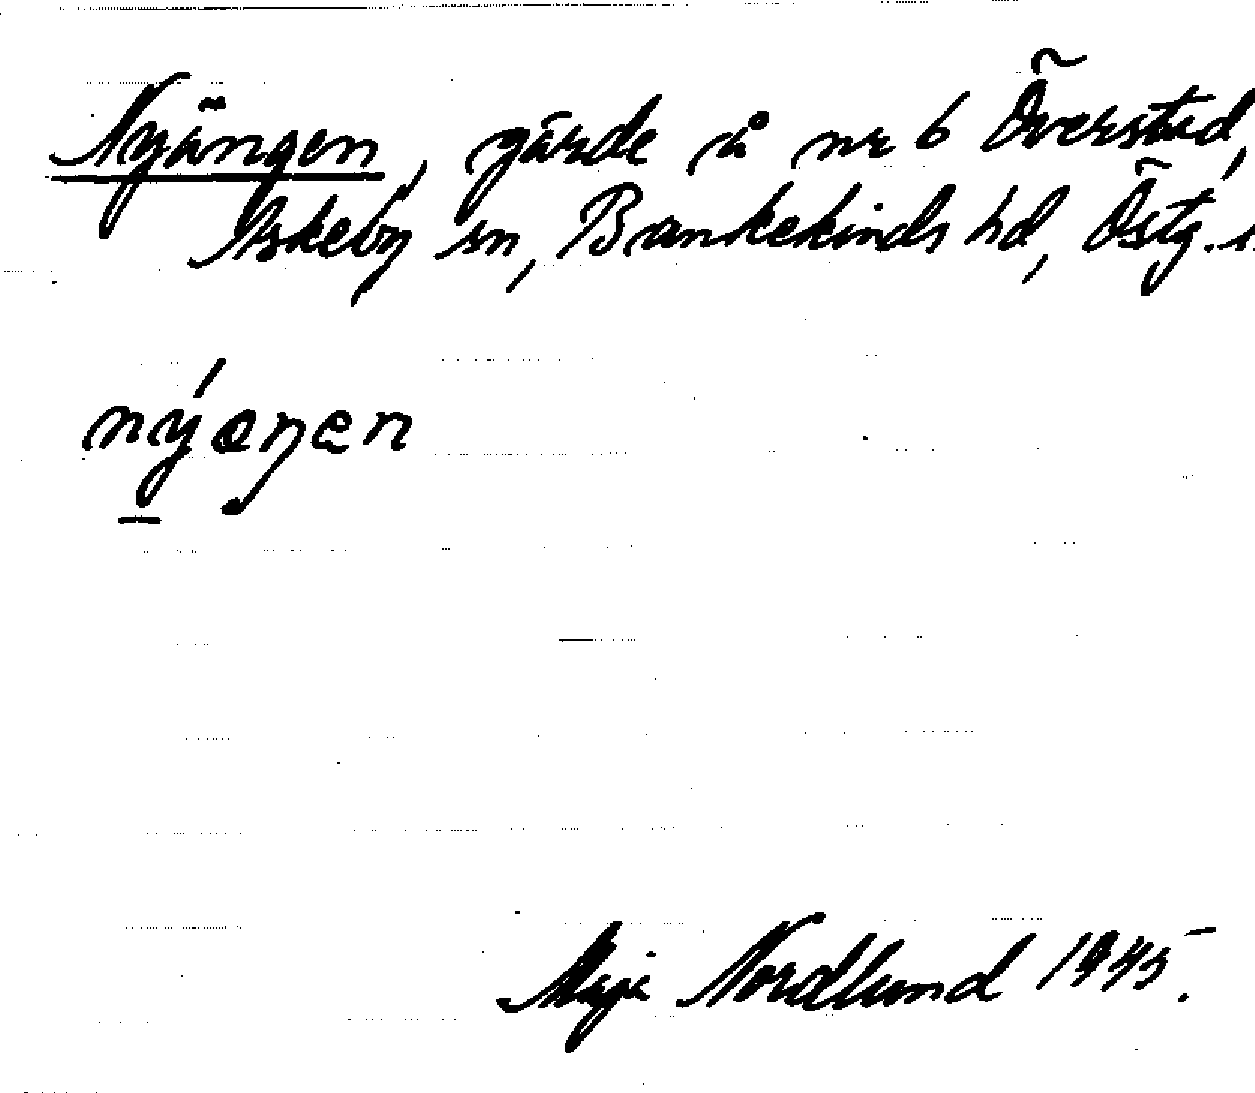 Nyängen, gärde å nr 6 Överstad,
Askeby sn, Bankekinds hd, Östg.
nýeŋen
Nordlund 1945.